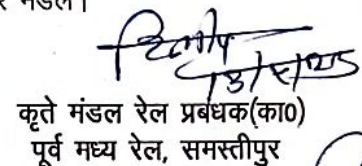 र मंडल।
दिलीप
कृते मंडल रेल प्रबंधक(का०)
पूर्व मध्य रेल, समस्तीपुर